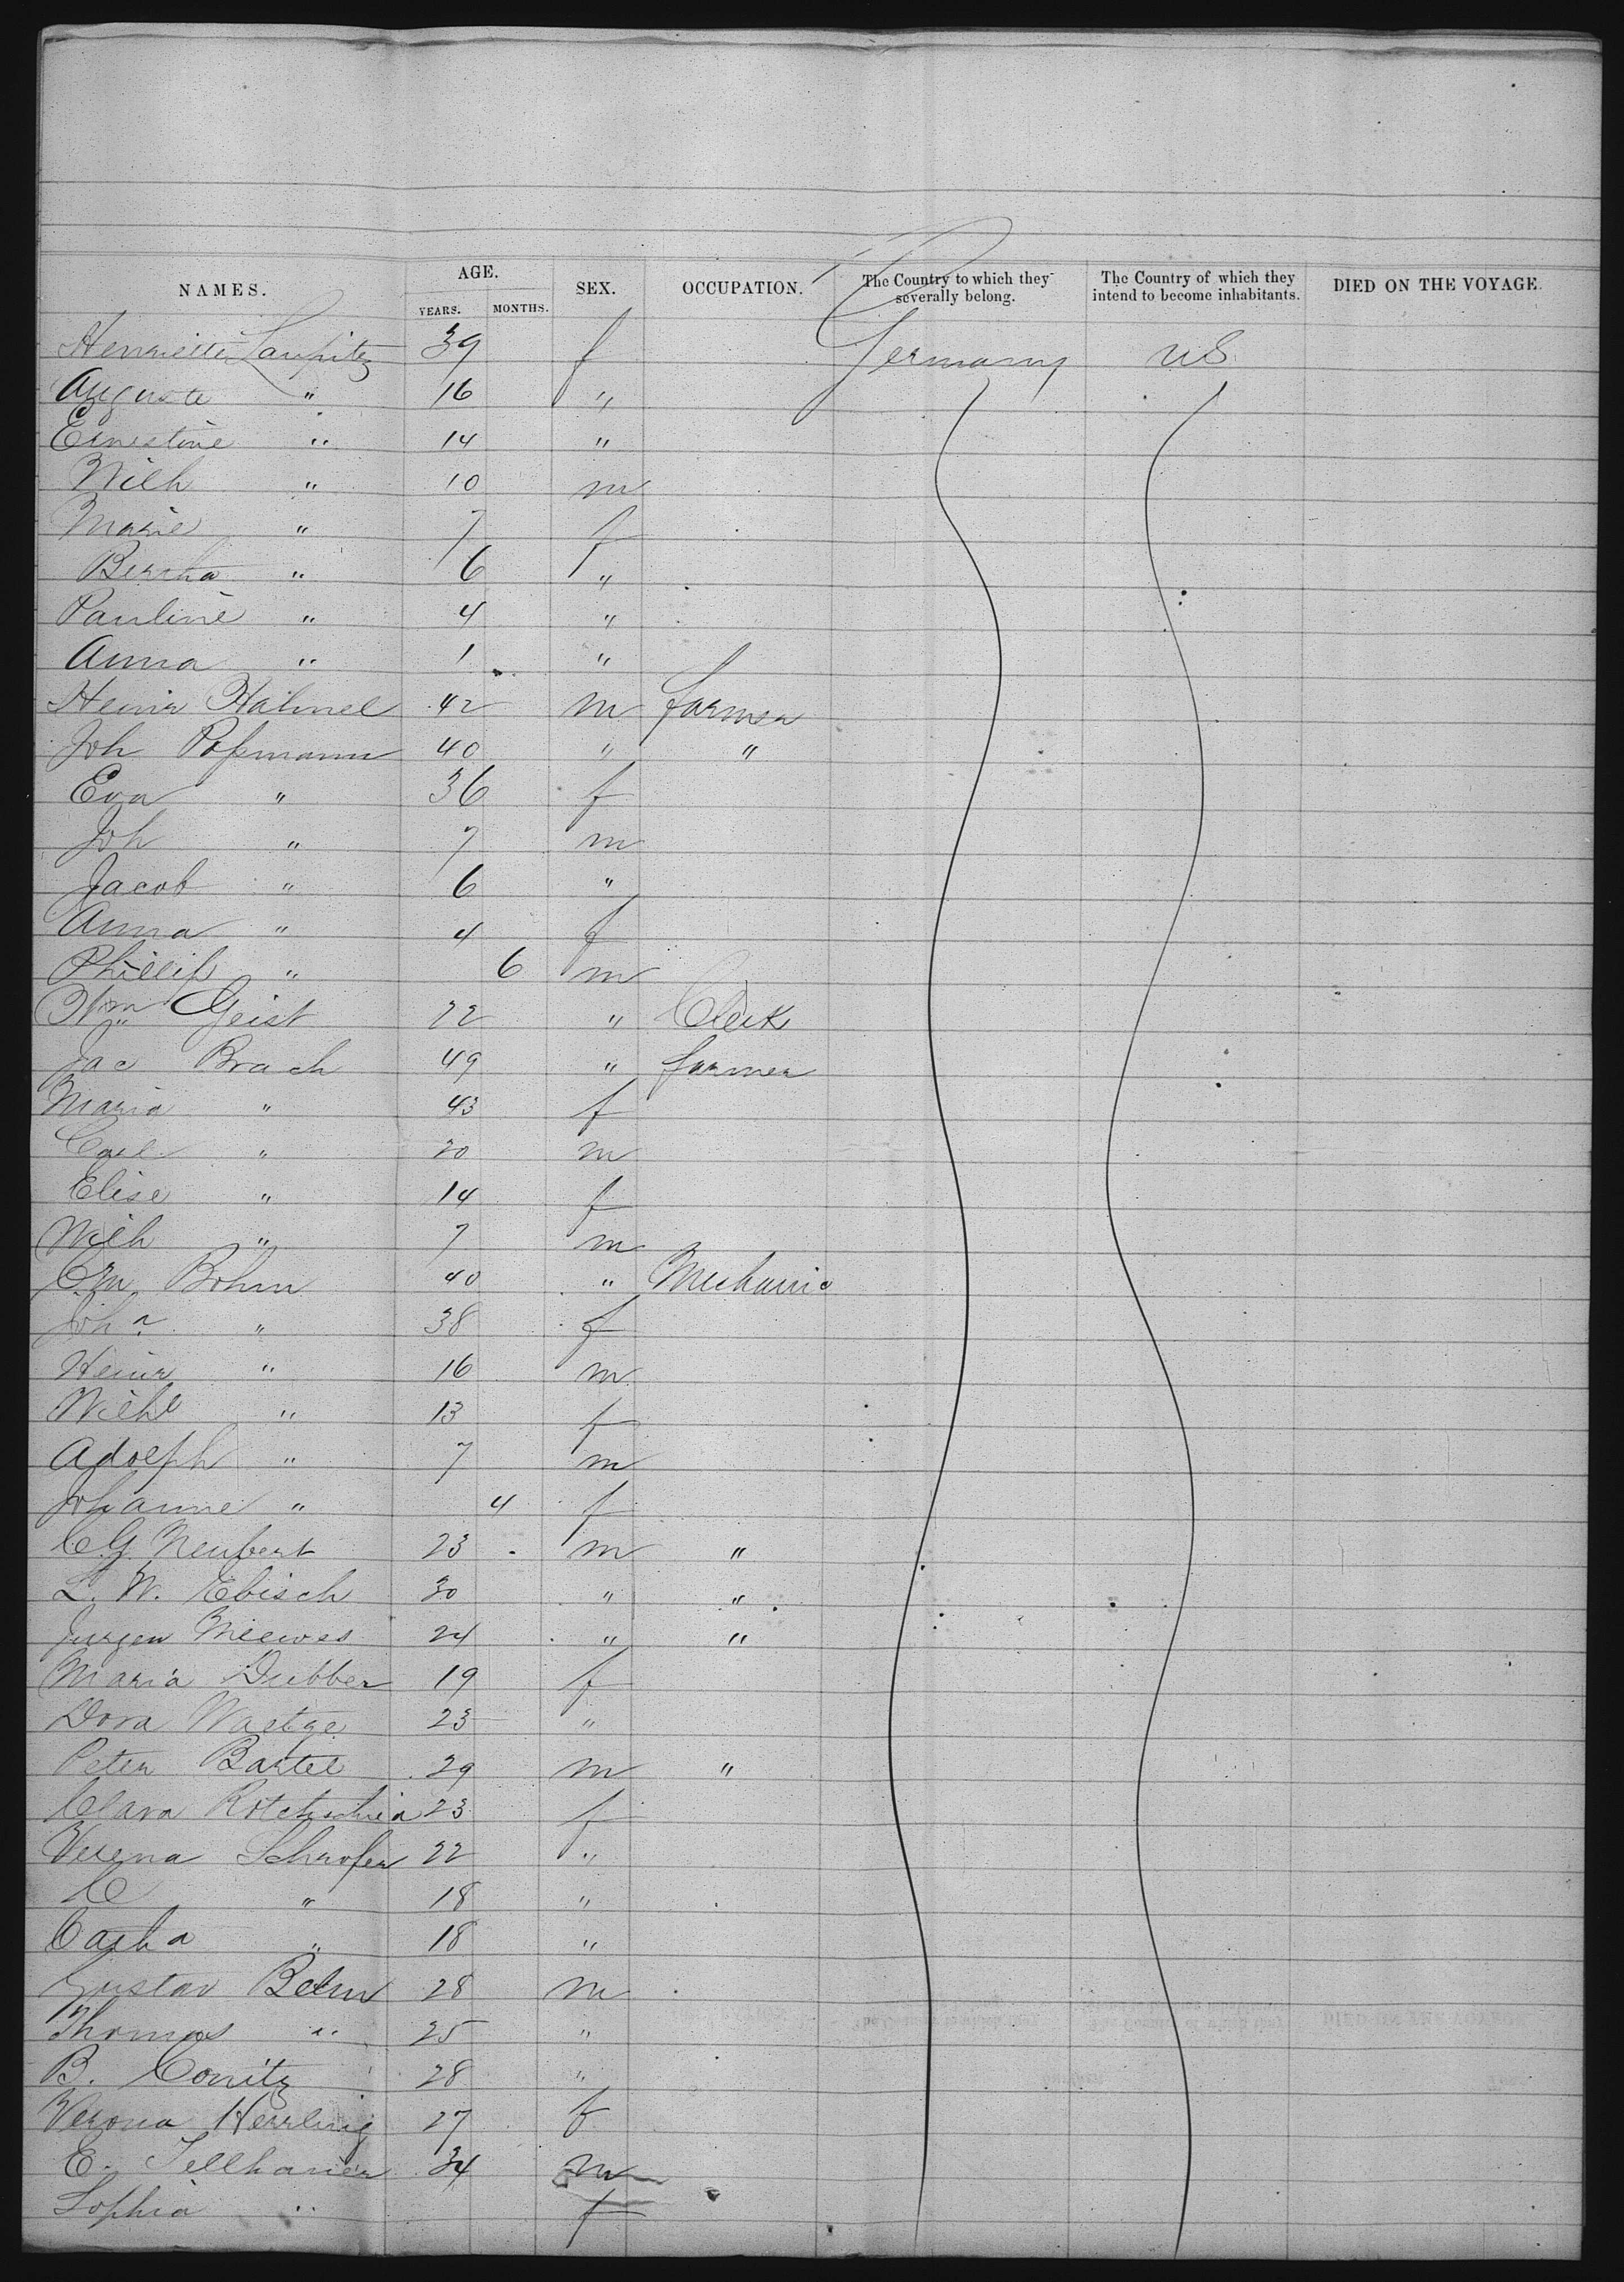 NAMES. AGE. SEX. OCCUPATION. The Country to which they severally belong. The Country of which they intend to become inhabitants. DIED ON THE VOYAGE.
YEARS. MONTHS.
Henriette Laupitz 39 f Germany US
Auguste " 16 "
Ernestine " 14 "
Wilh " 10 m
Marie " 7 f
Bertha " 6 "
Pauline " 4 "
Anna " 1 "
Heinr Hähnel 42 m farmer
Joh Poßmann 40 " "
Eva " 36 f
Joh " 7 m
Jacob " 6 "
Anna " 4 f
Phillip " 6 m
Wm Geist 22 " Clerk
Jac Brach 49 " farmer
Maria " 43 f
Carl " 20 m
Elise " 14 f
Wilh " 7 m
Bohm 40 " Mechanic
Joha " 38 f
Heinr " 16 m
Wilhe " 13 f
Adolph " 7 m
Johanne " 4 f
C.G. Neubert 23 m "
L. W. Ebisch 30 " "
Jurgen Meewes 24 " "
Maria Dubber 19 f
Dora Waetge 23 "
Peter Bartel 29 m "
Clara 23 f
Verena Schrofer 22 "
C " 18 "
" 18 "
Gustav Behn 28 m
Thomas " 25 "
B. Conitz 28 "
Verona Herrling 27 f
E. Tellhanier 34 m
Sophia " f